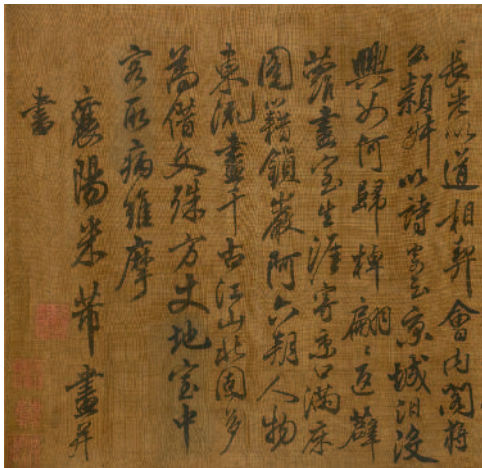 長老以道相契會內閣蔣
公穎叔以詩寄云京城汩沒
興如何歸棹翩〻返薜
蘿盡室生涯寄京口滿床
圖籍鎖巖阿六朝人物
東流盡千古江山北固多
為借文殊方丈地室中
容取病維摩
襄陽米芾畫并
書